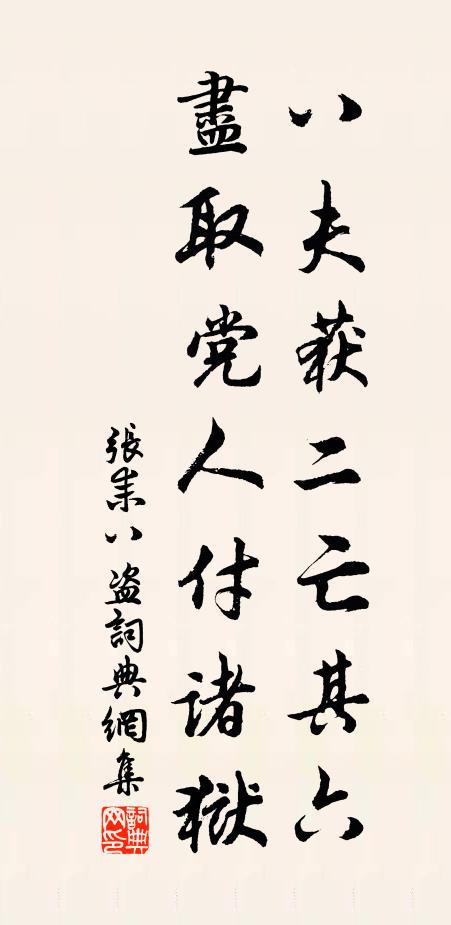 八夫获二亡其六
盡取党人付诸獄
張耒八盗詞典網集
詞典网印